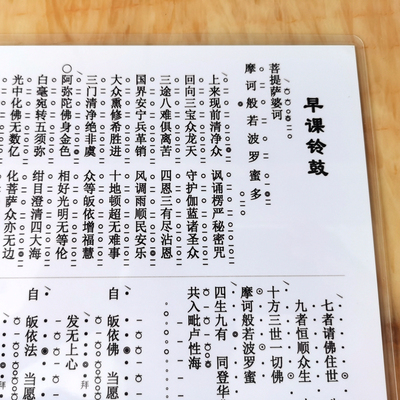 早课铃鼓
菩提萨婆诃
摩诃般若波罗蜜多
上来现前清净众 讽诵楞严秘密咒
回向三宝众龙天 守护伽蓝诸圣众
三途八难俱离苦 四恩三有尽沾恩
国界安宁兵革销 风调雨顺民安乐
大众熏修希胜进 十地顿超无难事
三门清净绝非虞 众等皈依增福慧
阿弥陀佛身金色 相好光明无等伦
白毫宛转五须弥 绀目澄清四大海
光中化佛无数亿 化菩萨众亦无边
七者请佛住世
九者恒顺众生
十方三世一切佛
摩诃般若波罗蜜
四生九有 同登华
共入毗卢性海
自 皈依佛 当愿
发无上心 拜
自 皈依法 当愿
拜